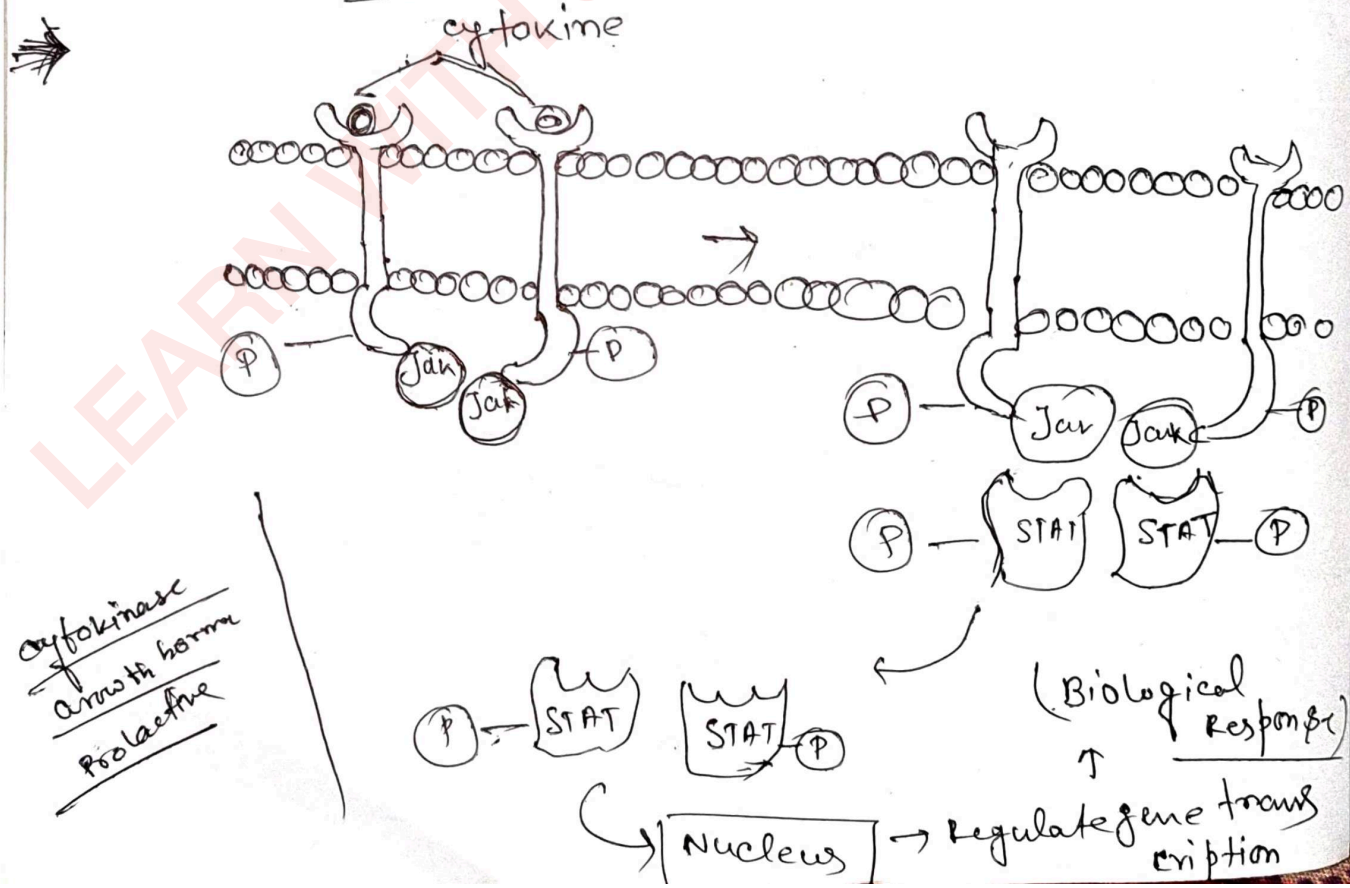 cytokine
LEARN WITH
P
Jak
Jak
P
P
Jak
Jak
P
P
STAT
STAT
P
cytokinase
Growth horma
Prolactine
P
STAT
STAT
P
(Biological
Response)
↑
Nucleus → Regulate gene trans
cription